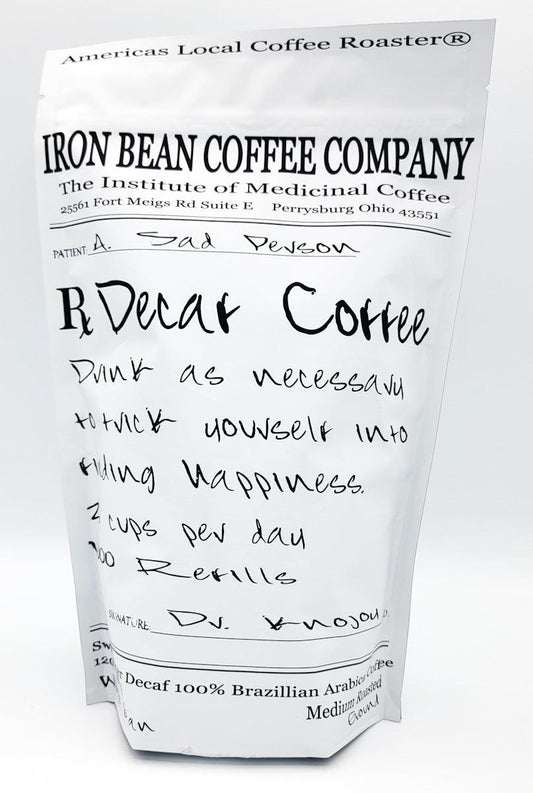 Americas Local Coffee Roaster®
IRON BEAN COFFEE COMPANY
The Institute of Medicinal Coffee
25561 Fort Meigs Rd Suite E Perrysburg Ohio 43551
PATIENT: A. Sad Person
Rx Decaf Coffee
Drink as necessary
to trick yourself into
finding happiness.
cups per day
Refills
SIGNATURE: Dr. Knojou
Decaf 100% Brazillian Arabica Coffee
Medium Roasted
Ground